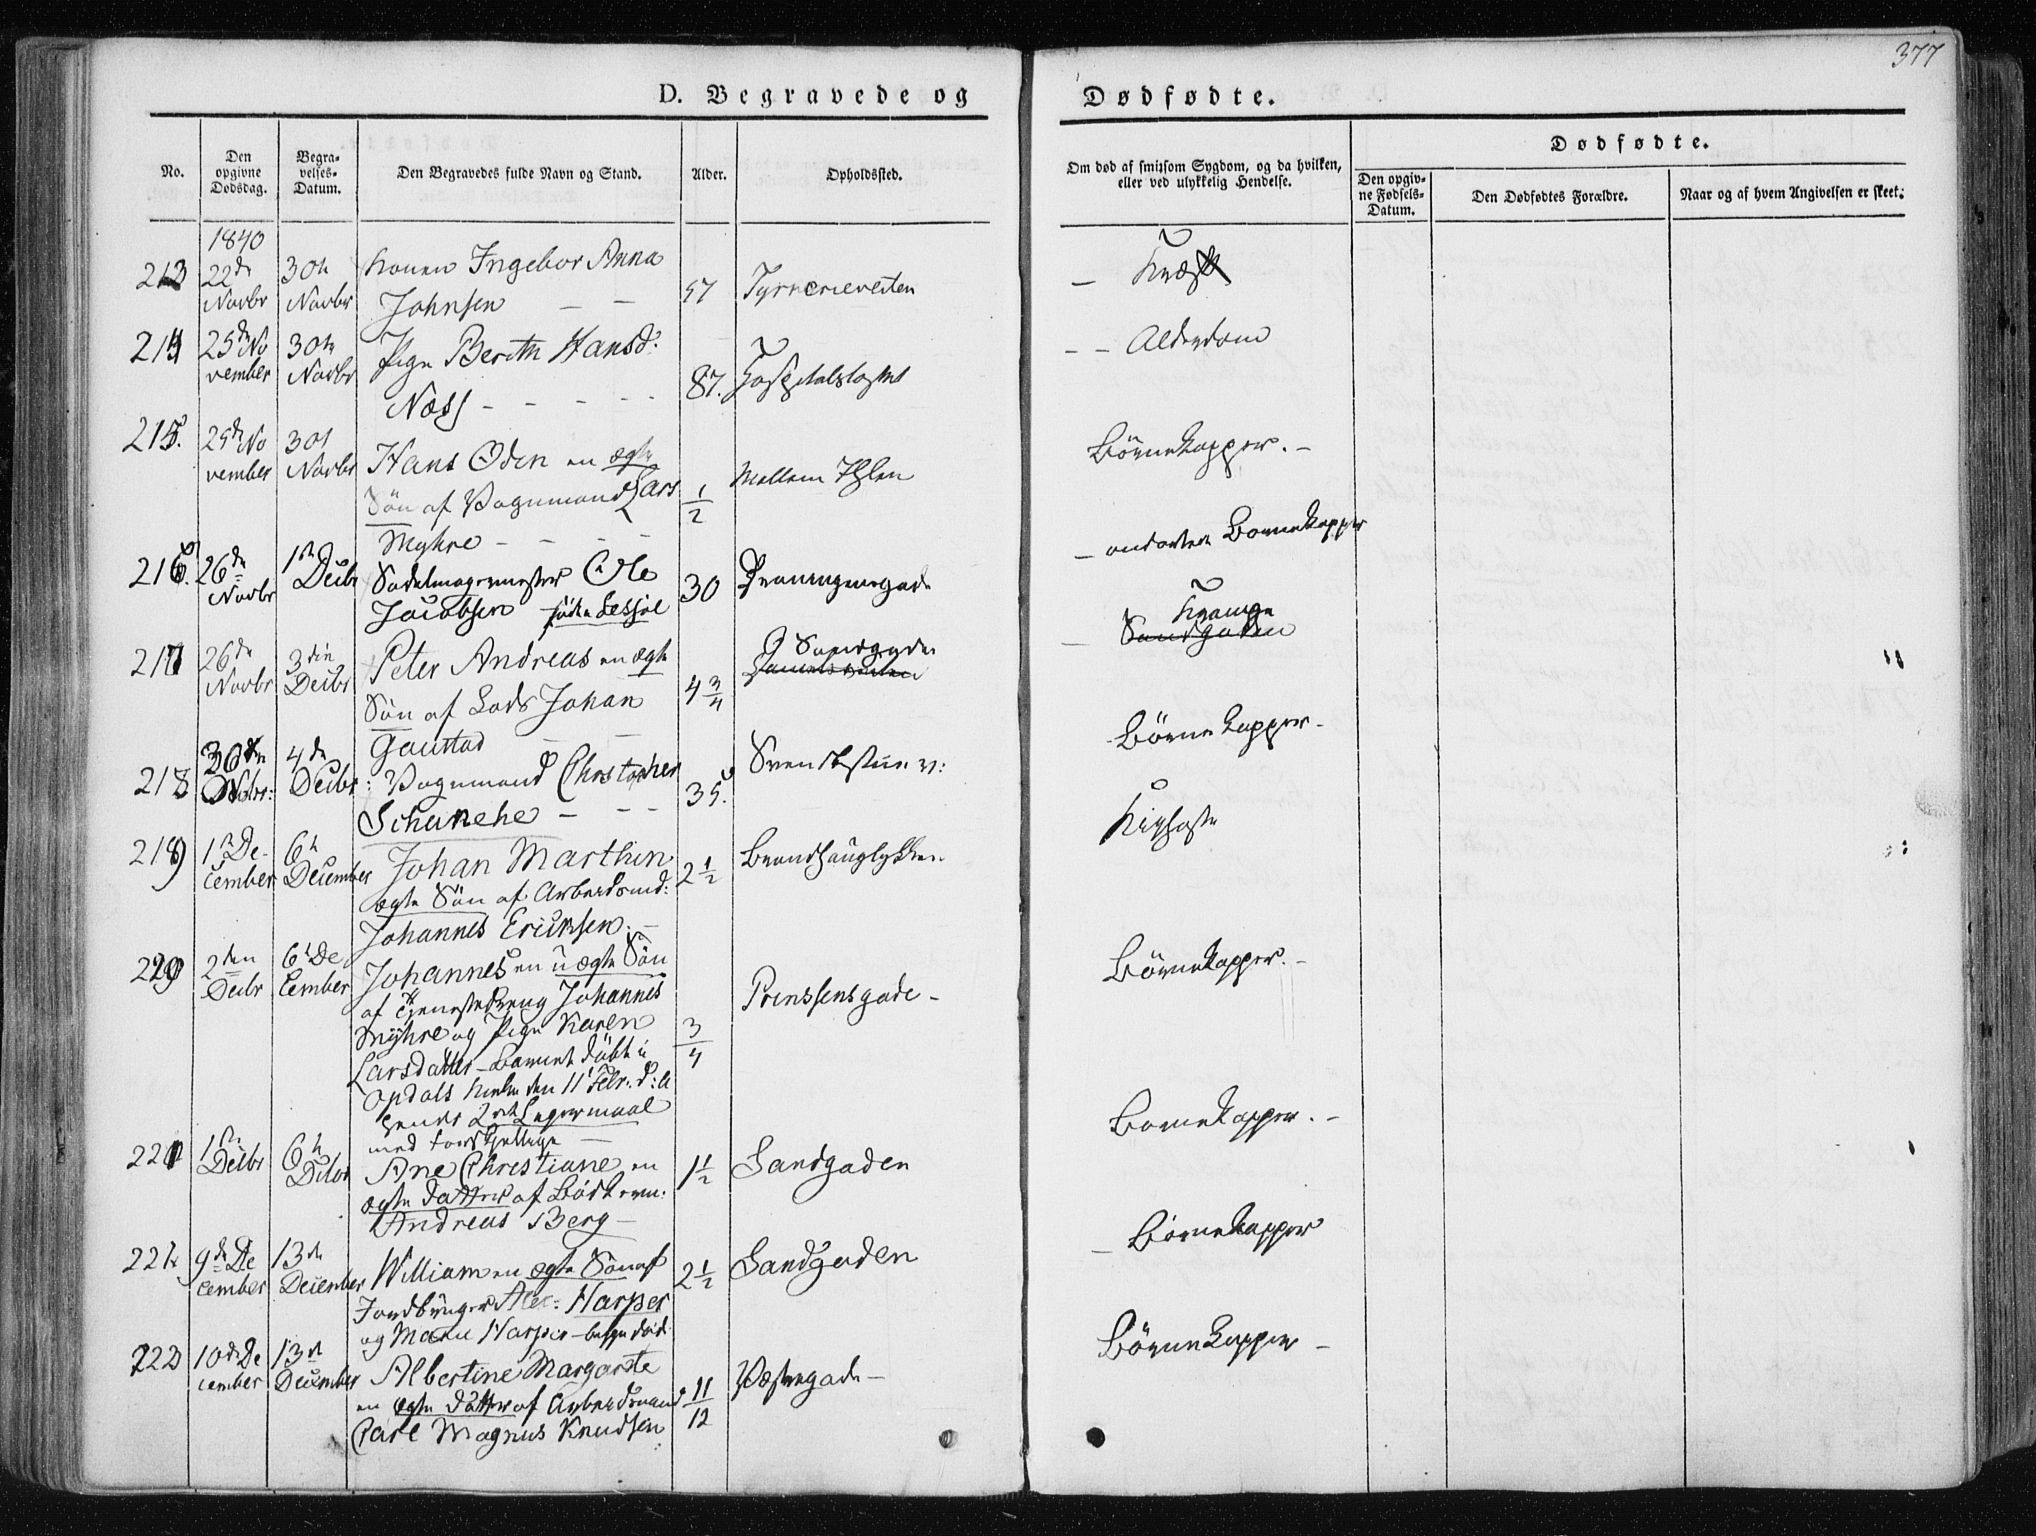 377
D. Begravede og Dødfødte.
No.
Den opgivne Dødsdag.
Begravelses-Datum.
Den Begravedes fulde Navn og Stand.
Alder.
Opholdssted.
Om død af smitsom Sygdom, og da hvilken, eller ved ulykkelig Hendelse.
Dødfødte.
Den opgivne Fødsels-Datum.
Den Dødfødtes Forældre.
Naar og af hvem Angivelsen er skeet.
1840
213 22de Novbr 30te Novbr Konen Ingebor Anna
Johnsen — — 57
214 25de November 30te Novbr Pige Berith Hansd:
Næss - - - - - 87. Hospitalstoftet — — Alderdom
215. 25de November 30t Novbr Hans Oden en ægte
Søn af Vognmand Lars 1/2 Mellem Ihlen Börnekopper. —
Myhre - - - -
216. 26de Novbr 1ste Decbr Sadelmagermester Ole
Jacobsen 30 Dronningensgade — ondartede Bornekopper
217 26de Novbr 3die Decbr Peter Andreas en ægte
Søn af Lods Johan 4 3/4 Sandgaden — Krampe
Gaustad — — Sandgaden
218 30den Novbr: 4de Decbr: Vognmand Christopher
Schanche — — — 35. Börnekopper -
219 1ste December 6te December Johan Marthin
ægte Søn af Arbeidsmd: 2 1/2 Brandhauglykken Kighoste
Johannes Ericksen. —
220 2den Decbr 6t December Johannes en uægte Søn
af Tjenestedreng Johannes Prinssensgade - Börnekopper. —
Myhre og Pige Karen 3/4
Larsdatter - Barnet døbt i
Opdals Kirke den 11 Febr: d: A
hendes 2det Leiermaal
med forskjellige —
221 1ste Decbr 6te Decbr Ane Christiane en 1 1/2 Sandgaden Bornekopper. —
ægte Datter af
Andreas Berg —
222 9de December 13de December William en ægte Søn af 2 1/2 Sandgaden — Börnekopper
Alex: Harper
og Marie Harper - begge død:
223 10de December 13de December Albertine Margarete
en ægte Datter af Arbeidsmand 11/12 Börnekopper —
Carl Magnus Knudsen